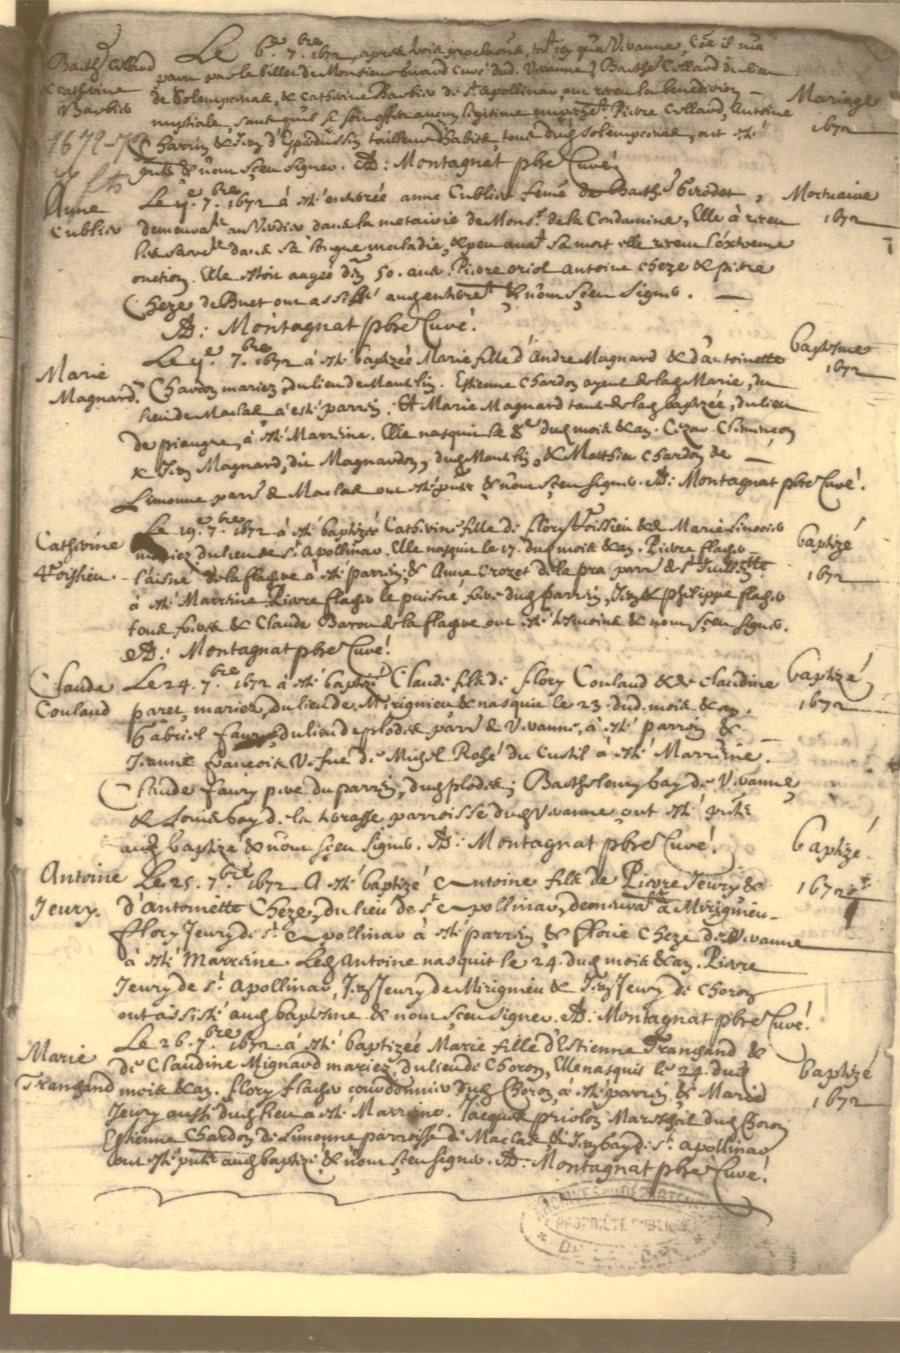 Barth. Colland
& Catherine
Barbier
Mariage
1672
1672-73
Le 6e 7.bre 1672, apres
par le billet de Monsieur Giraud curé dud. Vivanne, Barth. Colland du lieu
de Solempenat, & Catherine Barbier de St Apollinar, ont receu la benediction
nuptiale, sans qu'il se soit offert aucun legitime Pierre Colland, Antoine
Charrin & tailleur d'habits, tous dud Solempenat, ont été
pnts & nont sceu signer. A: Montagnat pbre Curé
Anne
Cublier
Mortuaire
1672
Le 7.bre 1672 à été enterrée anne Cublier feme de Barth. Girodet,
demeurat au Verdier dans la metairie de Monsr de la Condamine, Elle à receu
dans sa longue maladie, & peu avat sa mort elle receu l'extreme
onction. Elle étoit aagée d'e 50. ans. Pierre oriol antoine cheze & pierre
Cheze de Buet ont assisté aud enterret & n'ont sceu signer.
A: Montagnat pbre Curé.
Marie
Magnard.
baptesme
1672
Le 7.bre 1672 à été baptizée Marie fille d'Andre Magnard & d'antoinette
Chardon mariez, du lieu de Mantelin. Estienne Chardon ayeul de lad Marie, du
lieu de Maclas à esté parrin; Et Marie Magnard tante de lad baptizée, du lieu
de peaugre, à été Marrine. Elle nasquit le 8e dud mois & an.
& Magnard, dit Magnardon, dud Mantelin, & Matthieu Chardon de
Limonne parre de Maclas ont été pnts & n'ont sceu signer. A: Montagnat pbre Curé.
Catherine
Voissieu.
baptizé
1672
Le 19e 7.bre 1672 à été baptizée Catherine fille de flory Voissieu & de Marie
mariez du lieu de St Apollinar. Elle nasquit le 17. dud mois & an. Pierre flacher
l'aisné de la flache à été parrin, & Anne Crozet de la pra parre de St
à été Marrine. Pierre flacher le puisné frere dud parrin, Jean & philippe flacher
tous freres & Claude Baron de la flache ont été tesmoins & nont sceu signer.
A: Montagnat pbre Curé.
Claude
Couland
baptizé
1672
Le 24. 7.bre 1672 à été baptizé Claude fils de flory Couland & de claudine
paret, mariez, du lieu de Mirignieu & nasquit le 23. dud. mois & an.
Gabriel faury du lieu de plodet parre de Vivanne, à été parrin &
Jeanne francoise Vefue de Michel Robé du Custil à été Marrine.
Claude faury pere du parrin, dud plodet; Barthelomy bay de Vivanne
& Louis bay de la terasse parroisse dud Vivanne ont été pnts
aud baptizé & nont sceu signer. A: Montagnat pbre Curé.
Antoine
Jeury.
baptizé
1672
Le 25. 7.bre 1672 A été baptizé Antoine fils de Pierre Jeury &
d'Antoinette Cheze, du lieu de St Apollinar, demeurat à Mirignieu
flory Jeury de St Apollinar à été parrin & florie Cheze de Vivanne
à été Marrine. Led Antoine nasquit le 24. dud mois & an. Pierre
Jeury de St Apollinar, Jean Jeury de Mirignieu & Jean Jeury de Choron
ont assisté aud baptesme & nont sceu signer. A: Montagnat pbre Curé.
Marie
Tranchand
baptizé
1672
Le 26. 7.bre 1672. à été baptizée Marie fille d'Estienne Tranchand &
de Claudine Mignard mariez, du lieu de Choron, Elle nasquit le 24. dud
mois & an. flory flacher courdonnier dud Choron, à été parrin, & Marie
Jeury aussi dud lieu a été Marrine. Jacques priolon Mareschal dud Choron
Estienne Chardon de Limonne parroisse de Maclas & Jean bay de St apollinar
ont été pnts aud baptizé & n'ont sceu signer. A: Montagnat pbre Curé.
PROPRIÉTÉ PUBLIQUE